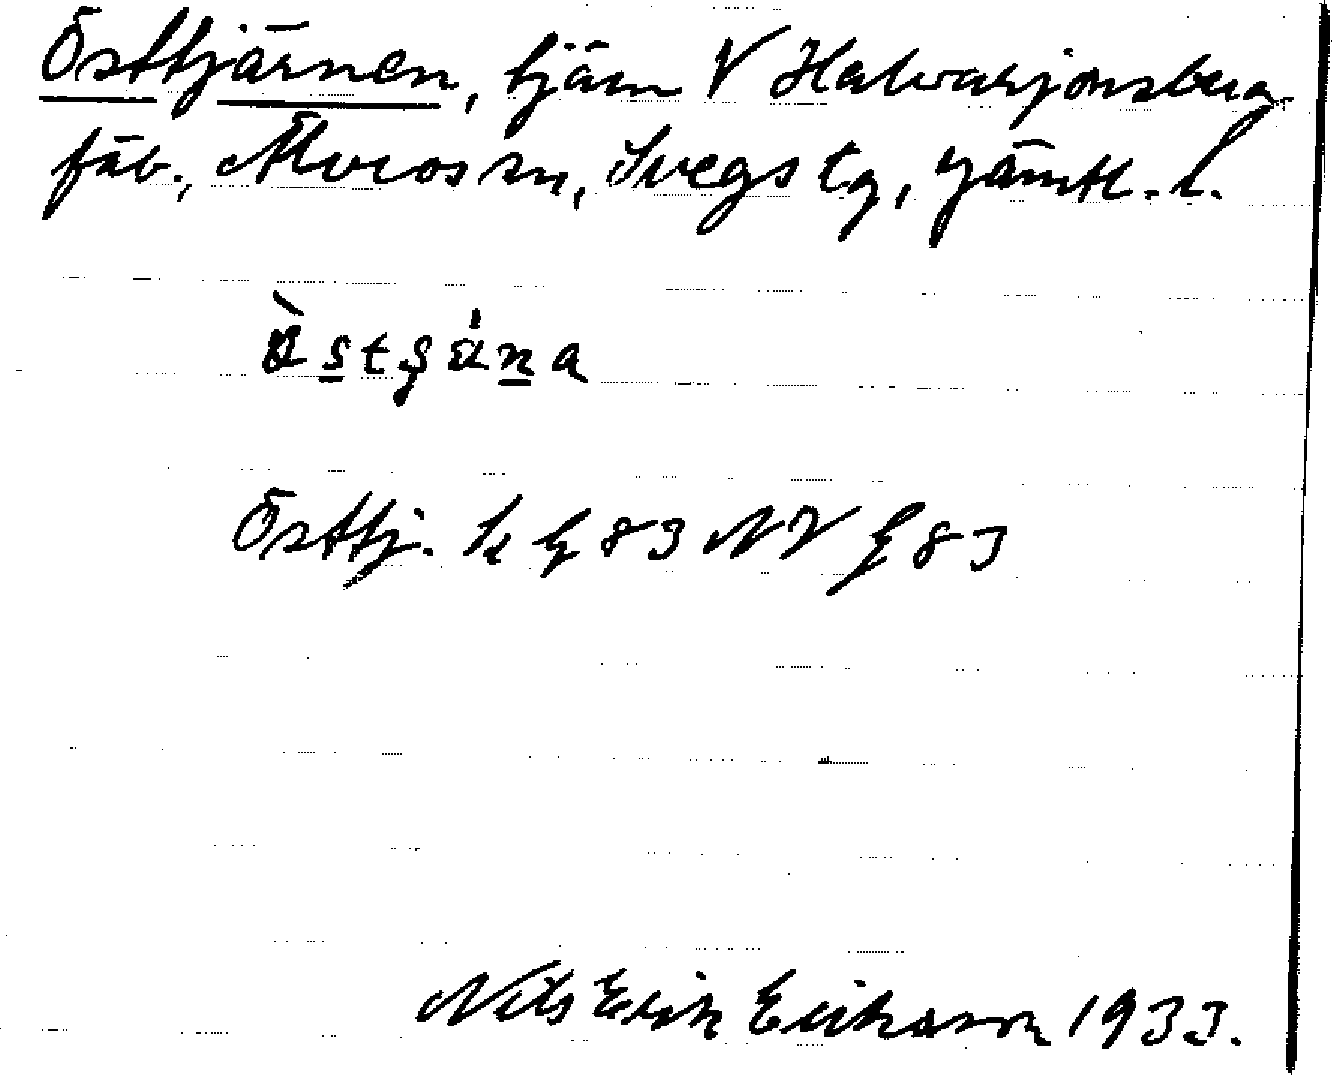 Östtjärnen, tjärn V Halvarjonsberg
fäb., Älvros sn, Svegs tg, Jämtl. l.
Östtj. k g 83 NV f 83
Nils Erik Erikson 1933.